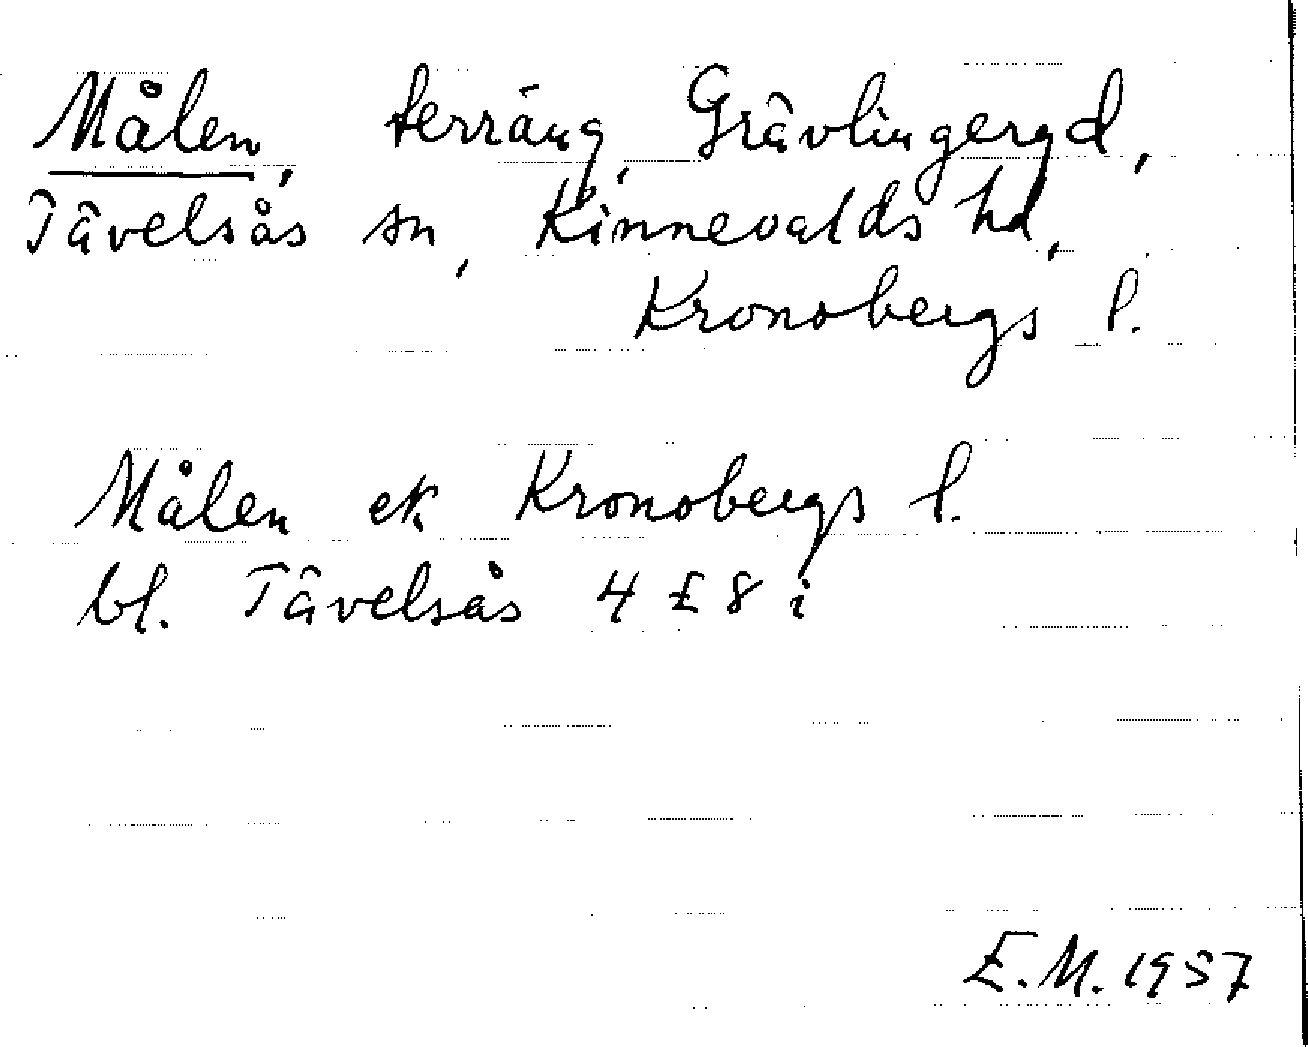 Målen, terräng, Grävlingeryd,
Tävelsås sn, Kinnevalds hd,
Kronobergs l.
Målen ek Kronobergs l.
bl. Tävelsås 4 E 8 i
E.M. 1957